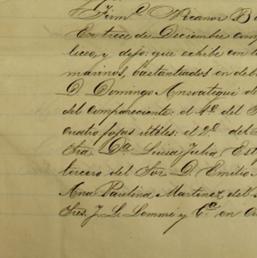 Firmo. Nicanor D
En trece de Diciembre comp
lico, y dijo: que exhibe con
marinos, bastanteados en deb
D. Domingo Ansoátegui d
del compareciente: el 1º del S
cuatro fojas útiles: el 2º del
Sra. Dª Luisa Julia Est
tercero del Sor. D. Emilio
Ana Paulina Martinez, del
Sres. J. L. Lemme y Cª en